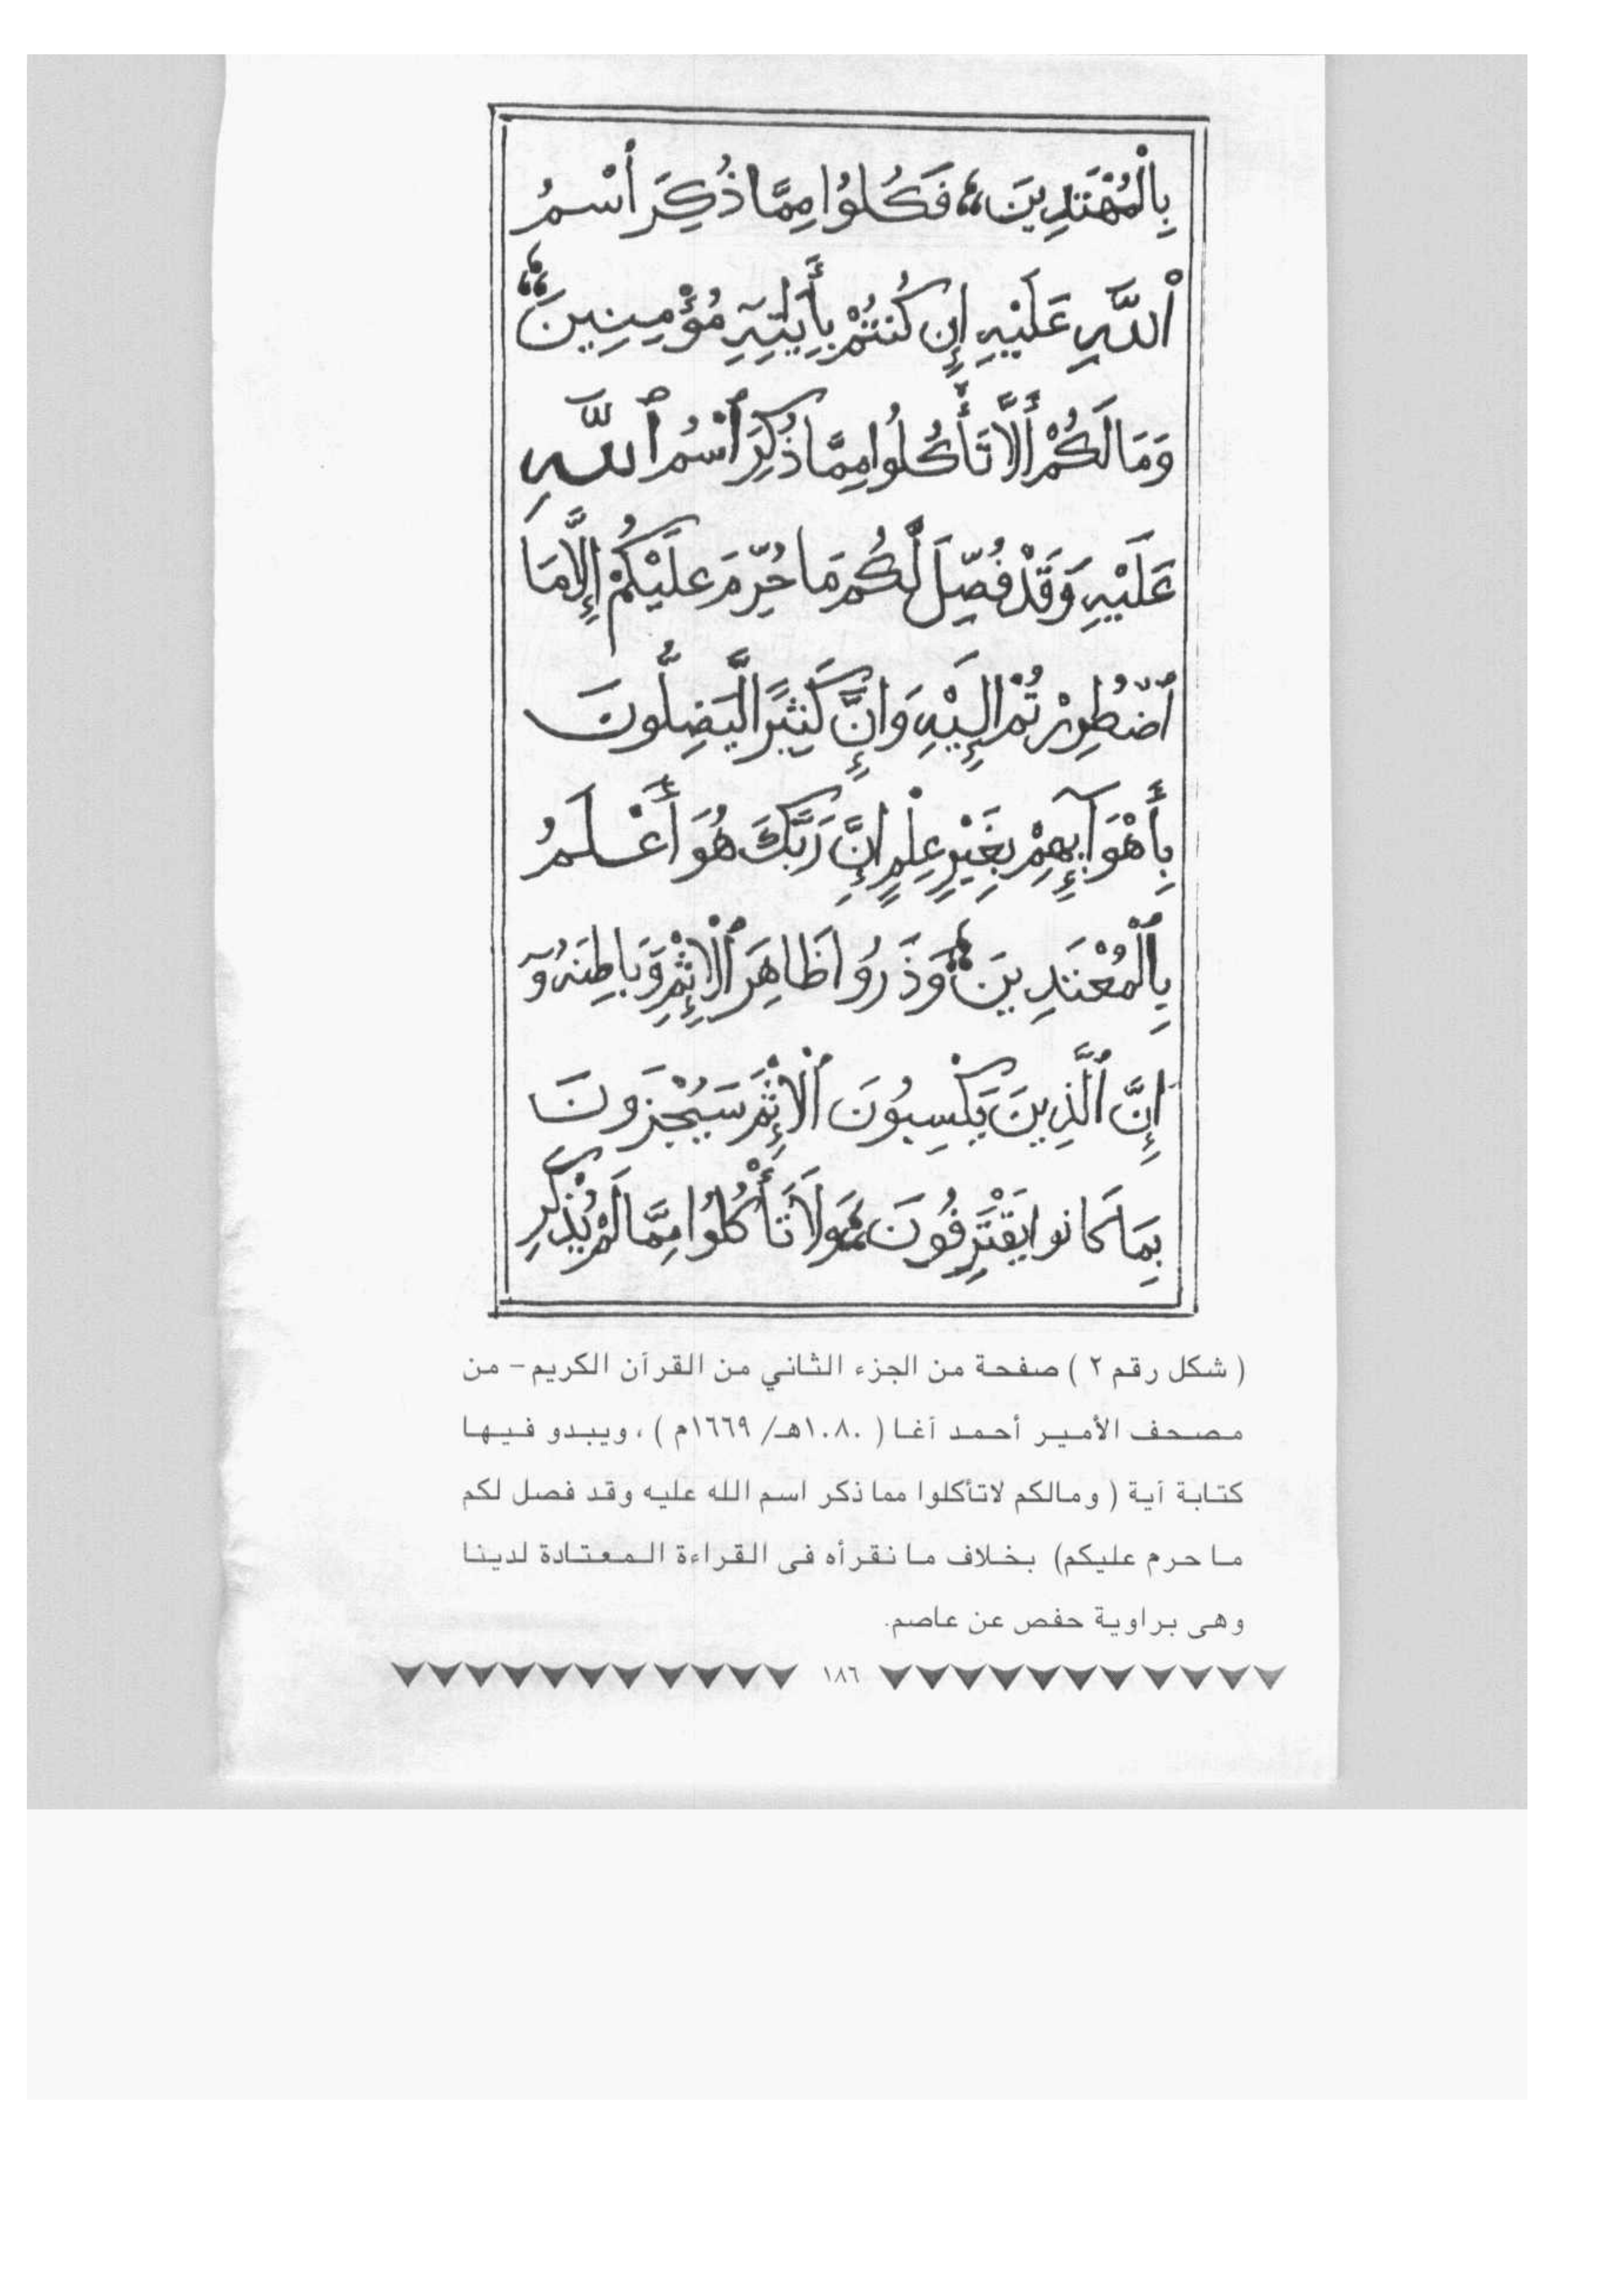 بِالْمُهْتَدِينَ فَكُلُوا مِمَّا ذُكِرَ أسْمُ
اْللَّهِ عَلَيْهِ إِن كُنتُمْ بِأَيَٰتِهِۦ مُؤْمِنِينَ
وَمَا لَكُمْ أَلَّا تَأْكُلُوا مِمَّا ذُكِرَ ٱسْمُ ٱللَّهِ
عَلَيْهِ وَقَدْ فُصِّلَ لَكُم مَا حُرِّمَ عَلَيْكُمْ إِلَّا مَا
ٱضْطُرِرْتُمْ إِلَيْهِ وَإِنَّ كَثِيرًا لَّيَضِلُّونَ
بِأَهْوَآئِهِمْ بِغَيْرِ عِلْمٍ إِنَّ رَبَّكَ هُوَ أَعْلَمُ
بِٱلْمُعْتَدِينَ وَذَرُوا ظَاهِرَ ٱلْإِثْمِ وَبَاطِنَهُۥٓ
إِنَّ ٱلَّذِينَ يَكْسِبُونَ ٱلْإِثْمَ سَيُجْزَوْنَ
بِمَا كَانوا يَقْتَرِفُونَ وَلَا تَأْكُلُوا مِمَّا لَمْ يُذْكَرِ
( شكل رقم ٢ ) صفحة من الجزء الثاني من القرآن الكريم - من
مصحف الأمير أحمد آغا ( ١٠٨٠هـ/ ١٦٦٩م ) ، ويبدو فيها
كتابة آية ( ومالكم لاتأكلوا مما ذكر اسم الله عليه وقد فصل لكم
ما حرم عليكم) بخلاف ما نقرأه فى القراءة المعتادة لدينا
وهى براوية حفص عن عاصم.
١٨٦